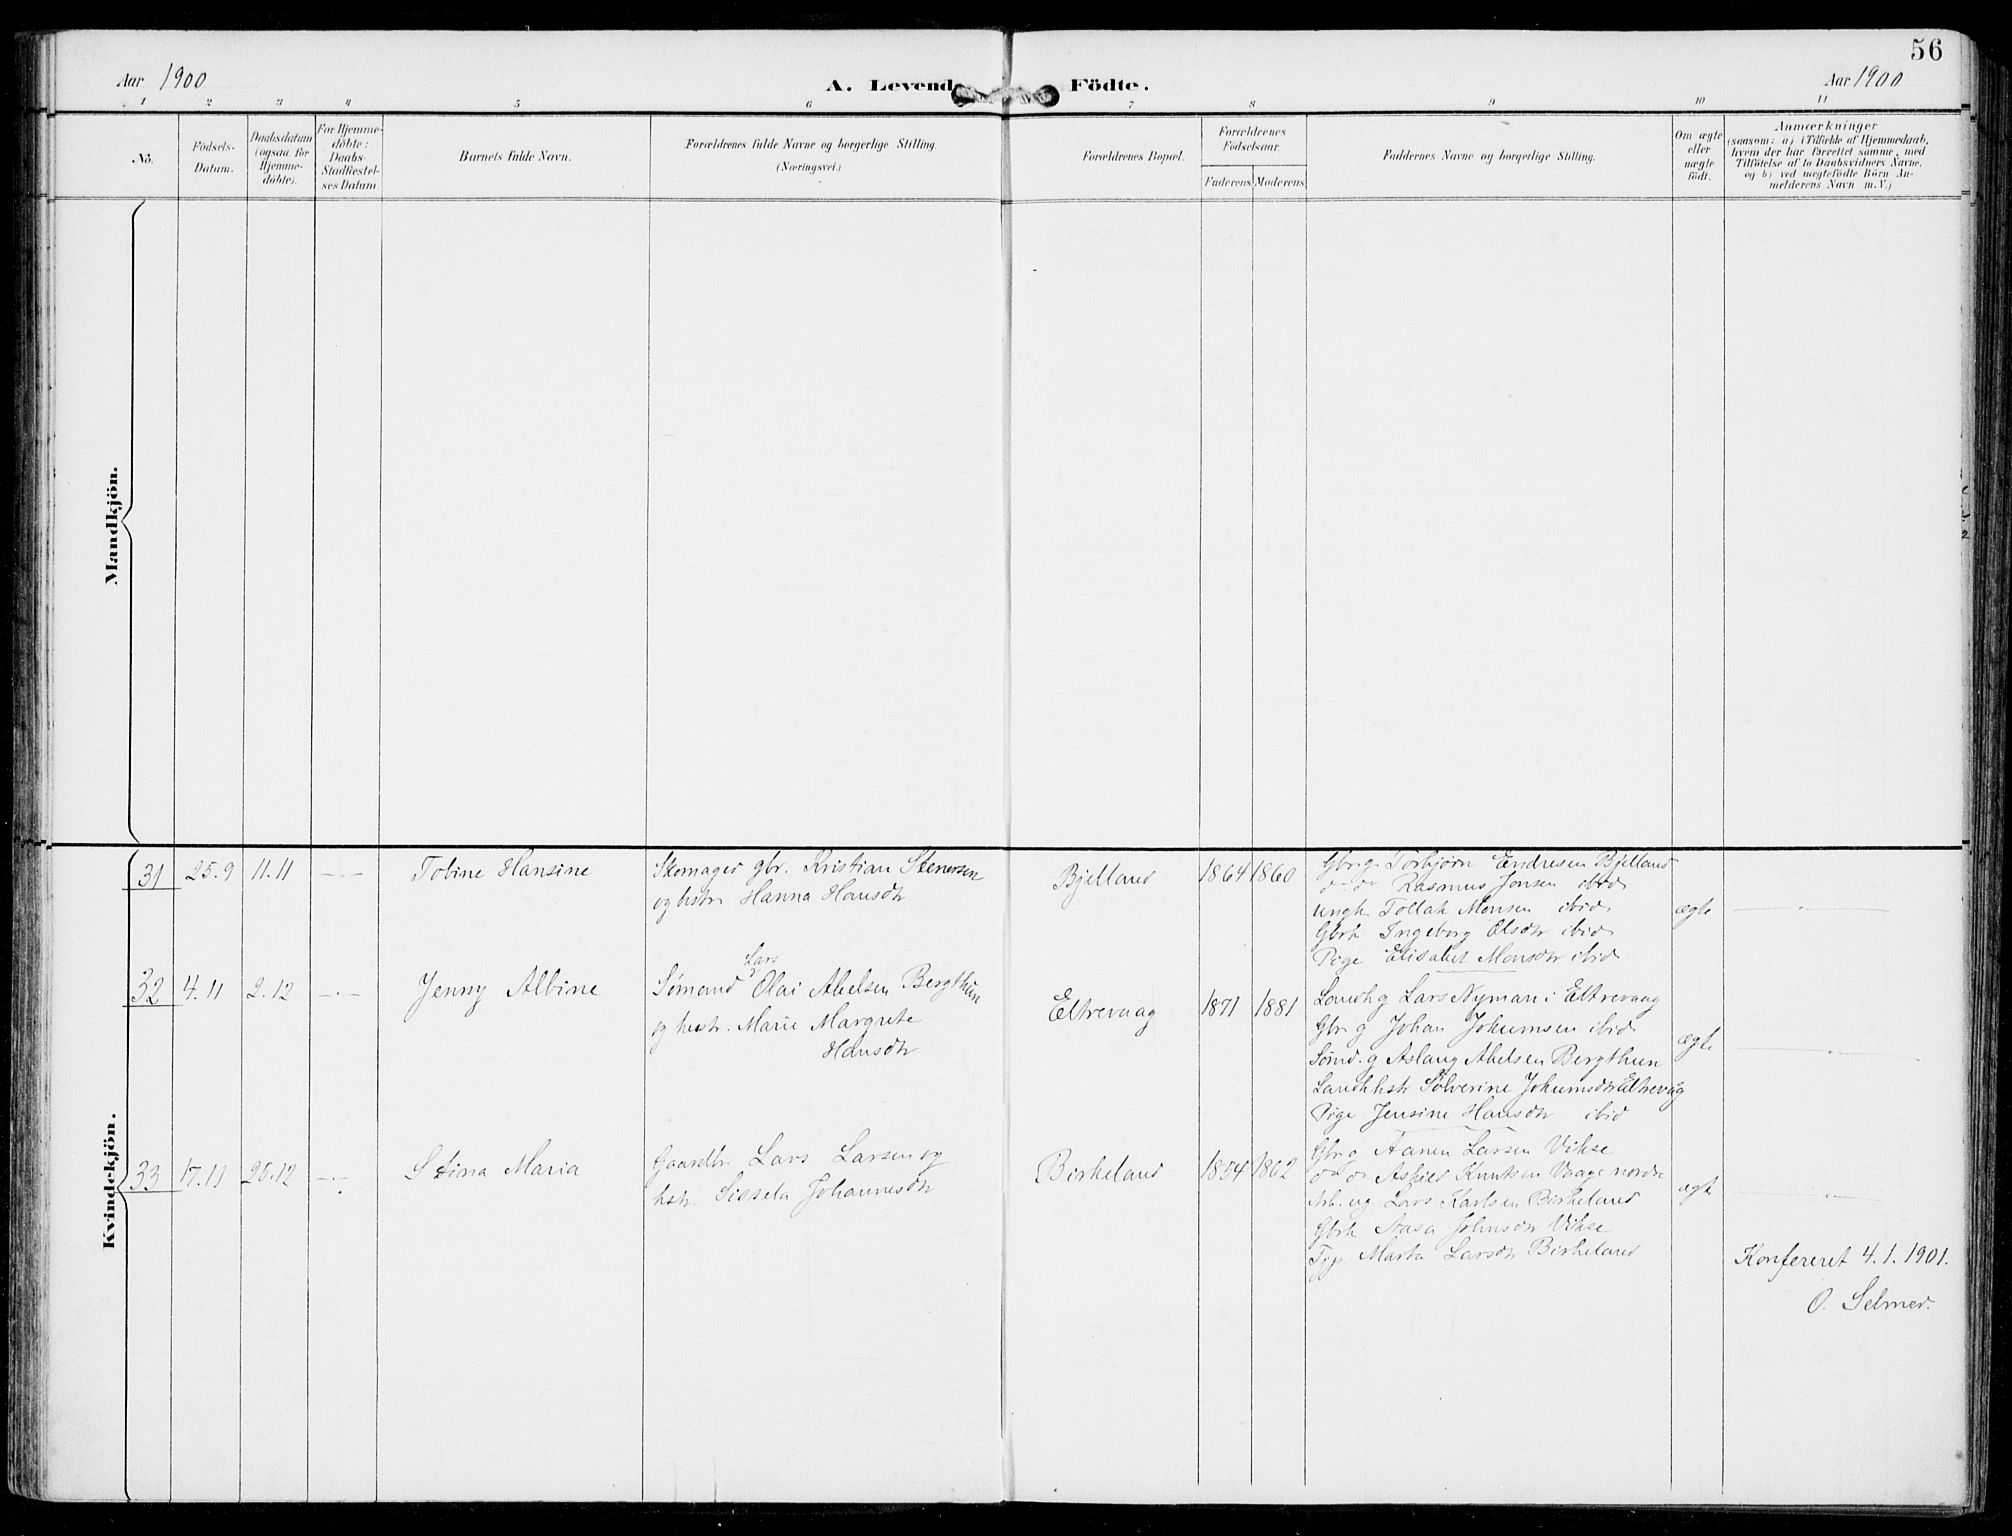 56
Aar 1900
A. Levende Födte.
Aar 1900
1 2 3 4 5 6 7 8 9 10 11
No.
Födsels-
Datum.
Daabsdatum
(ogsaa for
Hjemme-
döbte).
For Hjemme-
döbte:
Daabs-
Stadfæstel-
ses Datum
Barnets fulde Navn.
Forældrenes fulde Navne og borgerlige Stilling.
(Næringsvei.)
Forældrenes Bopæl.
Forældrenes
Födselsaar.
Faderens Moderens
Faddernes Navne og borgerlige Stilling.
Om ægte
eller
uægte
födt.
Anmærkninger
(saasom: a) i Tilfælde af Hjemmedaab,
hvem der har forrettet samme, med
Tilföielse af to Daabsvidners Navne,
og b) ved uægtefödte Börn An-
melderens Navn m.V.)
Mandkjön.
Kvindekjön.
31 25.9 11.11 —
Tobine Hansine
Skomager gbr. Kristian Stenersen
og hstr Hanna Hansdtr
Bjelland
1864 1860
Gbr.g. Torbjørn Endresen Bjelland
do do Rasmus Jonsen ibid
ungk Tollak Monsen ibid
Gbrk Ingeborg Olsdtr ibid
Pige Elisabet Monsdtr ibid
ægte
—
32 4.11 2.12 —
Jenny Albine
Lars
Sømand Olai Abelsen Bergthun
og hustr. Marie Margrete
Hansdtr
Eltrevaag
1871 1881
Landh g Lars Nyman i Eltrevaag
Gbr g Johan Johumsen ibid
Sømd. g Aslaug Abelsen Bergthun
Landhhstr Sølverine Johumsdtr Eltrevåg
Pige Jensine Hansdtr ibid
ægte
—
33 17.11 25.12 —
Stina Maria
Gaardbr Lars Larsen og
hstr. Sissela Johannesdtr
Birkeland
1854 1862
Gbr g Aanen Larsen Vikse
do do Askild Knutsen Vaage nordre
Arb. ug Lars Karlsen Birkeland
Gbrk Aasa Johnsdtr Vikse
Tjp. Marta Larsdtr Birkeland
ægte
—
Konfereret 4.1.1901.
O. Selmer.